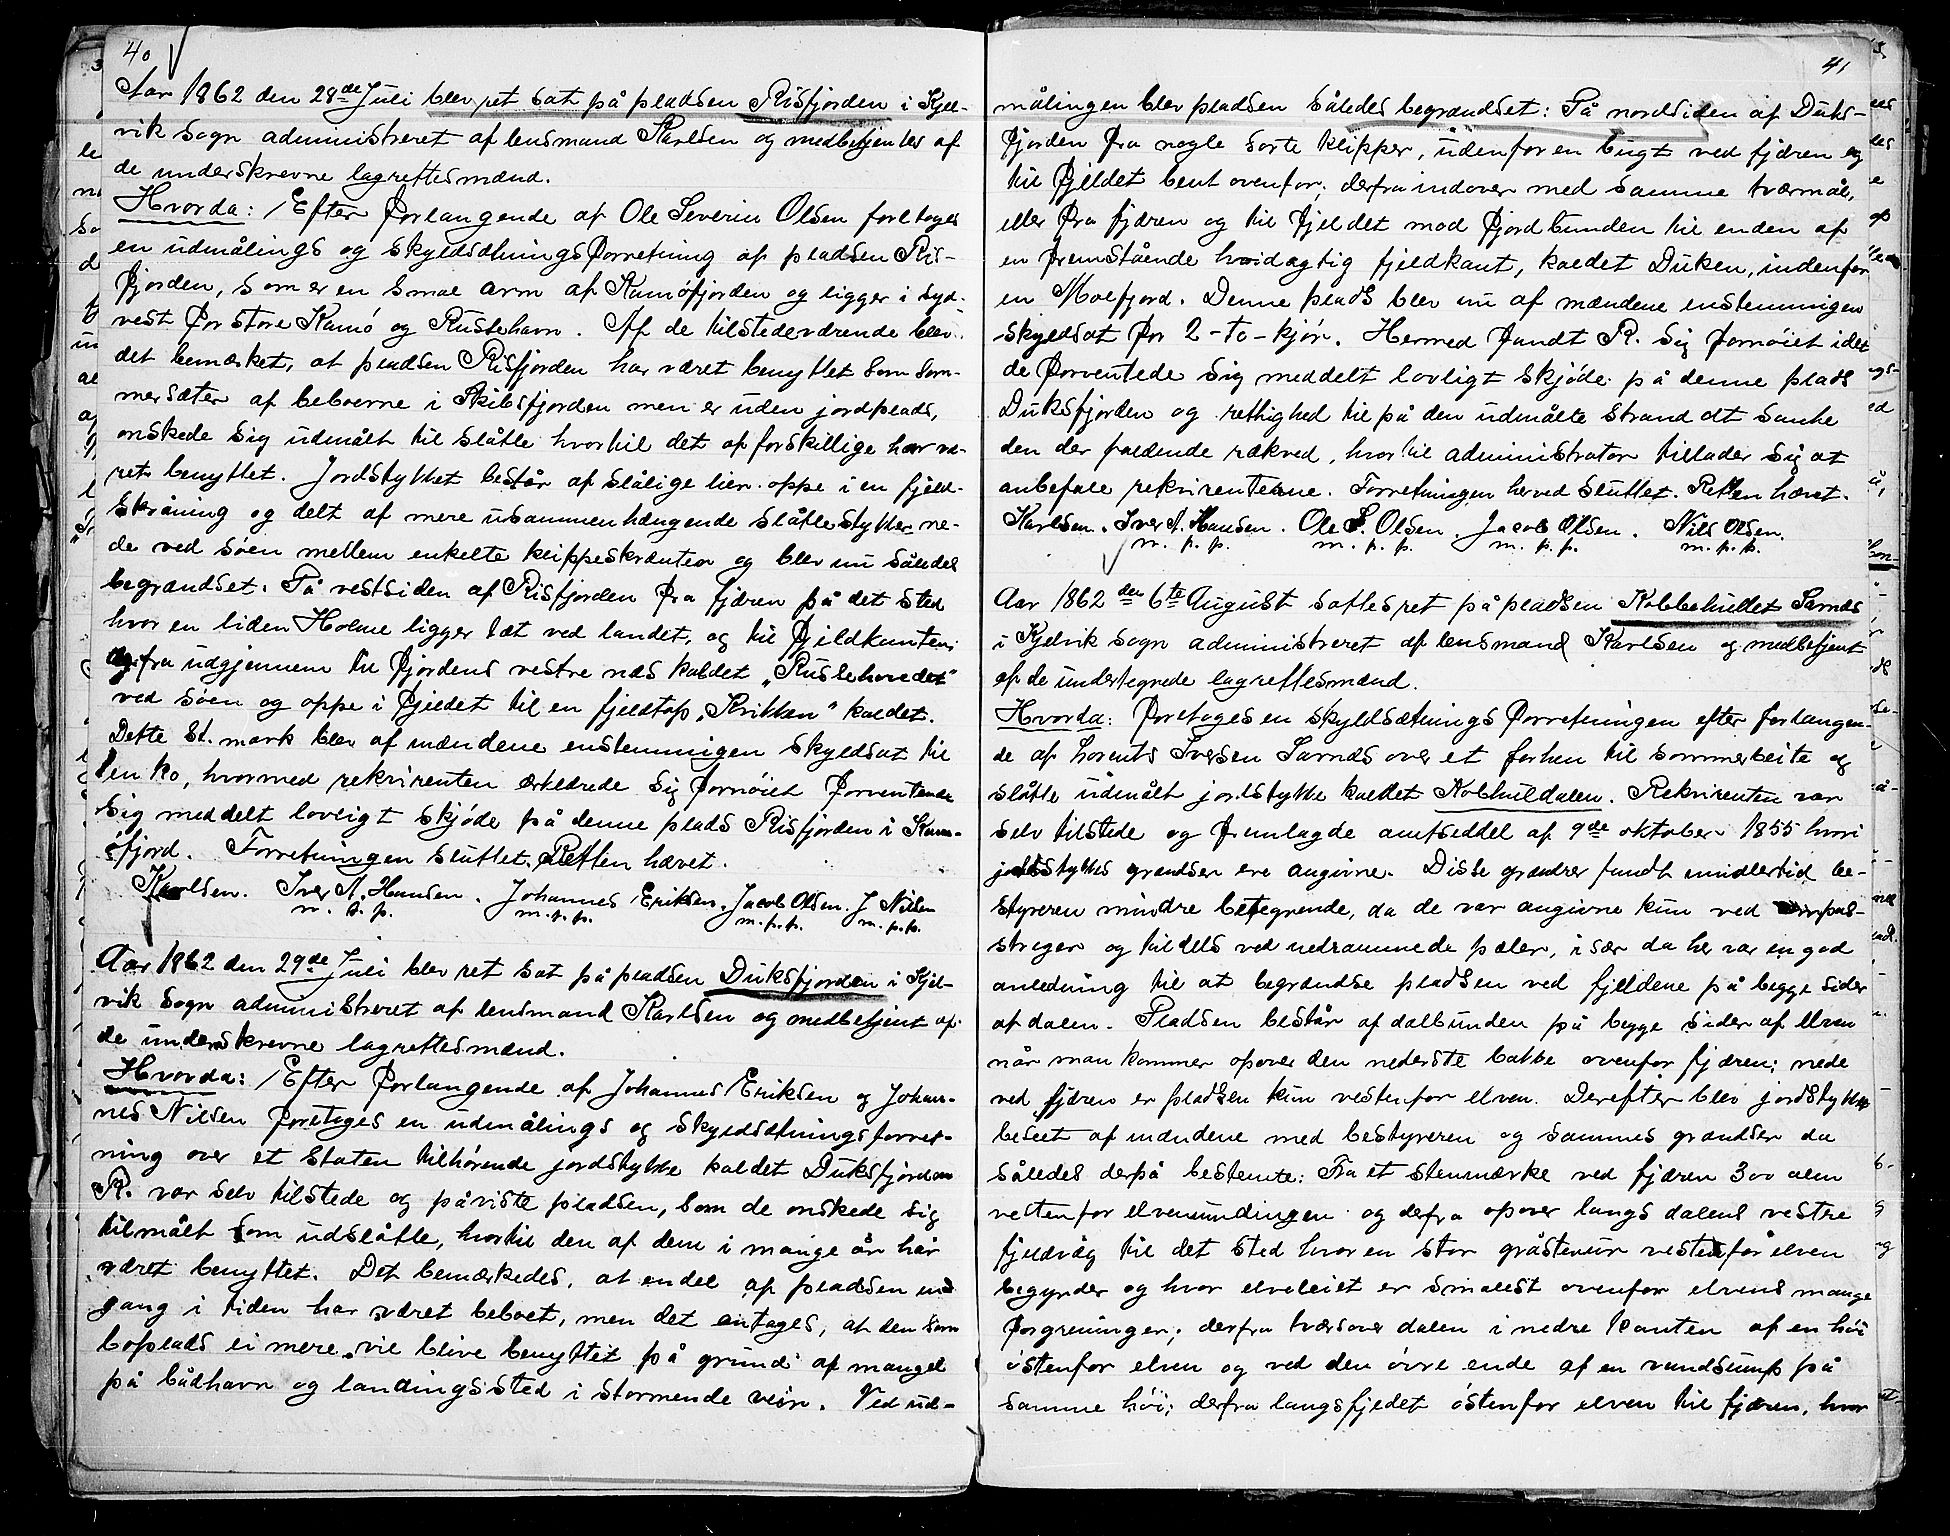 40
Aar 1862 den 28de Juli blev ret sat på pladsen Risfjorden i Kjel-
vik sogn administreret af lensmand Karlsen og medbetjentes af
de underskrevne lagrettesmænd.
Hvorda: /Efter Forlangende af Ole Severin Olsen foretoges
en udmålings og skyldsætningsforretning af pladsen Ris-
fjorden, som er en smal arm af Kamøfjorden og ligger i syd-
vest for store Kamø og Russehavn. Af de tilstedeværende blev
det bemærket, at pladsen Risfjorden har været benyttet som som-
mersæter af beboerne i Skibsfjorden men er uden jordplads,
onskede sig udmålt til slåtte hvortil det af forskillige har væ-
ret benyttet. Jordstykket består af slålige lier oppe i en fjeld-
skråning og delt af mere usammenhængende slåttestykker ne-
de ved søen mellem enkelte klippeskrænter og blev nu således
begrændset: På vestsiden af Risfjorden fra fjæren på det sted
hvor en liden Holme ligger tæt ved landet, og til fjeldkanten;
fra udgjennem til fjordens vestre næs kaldet „Russehovedet"
ved søen og oppe i fjeldet til en fjeldtop „Krikken" kaldet.
Dette St. mark blev af mændene enstemmigen skyldsat til
1 en ko, hvormed rekvirenten erklærede sig fornøiet forventende
sig meddelt lovligt skjøde på denne plads Risfjorden i Kam-
øfjord. Forretningen sluttet. Retten hævet.
Karlsen. Iver A. Hansen. Johannes Eriksen. Jacob Olsen. J Nilsen
m. p. p. m. p. p. m. p. p. m. p. p.
Aar 1862 den 29de Juli blev ret sat på pladsen Duksfjorden i Kjel-
vik sogn administreret af lensmand Karlsen og medbetjent af
de underskrevne lagrettesmænd.
Hvorda: /Efter Forlangende af Johannes Eriksen og Johan-
nes Nilsen foretoges en udmålings og skyldsætningsforret-
ning over et staten tilhørende jordstykke kaldet Duksfjorden
R. var selv tilstede og påviste pladsen, som de onskede sig
tilmålt som udslåtte, hvortil den af dem i mange år har
været benyttet. Det bemærkedes, at endel af pladsen en
gang i tiden har været beboet, men det antages, at den som
boplads ei mere vil blive benyttet på grund af mangel
på bådhavn og landingssted i stormende veir. Ved ud-
41
målingen blev pladsen således begrændset: På nordsiden af Duks-
fjorden fra nogle sorte klipper, udenfor en bugt ved fjæren og
til fjeldet bent ovenfor; derfra indover med samme tværmål,
eller fra fjæren og til fjeldet mod fjordbunden til enden af
en fremstående hvidagtig fjeldkant, kaldet Duken, indenfor
en Molfjord. Denne plads blev nu af mændene enstemmigen
skyldsat for 2 - to - kjør. Hermed fandt R. sig fornøiet idet
de forventede sig meddelt lovligt skjøde på denne plads
Duksfjorden og rettighed til på den udmålte strand at sanke
den der faldende rækved, hvortil administrator tillader sig at
anbefale rekvirenterne. Forretningen herved sluttet. Retten hævet.
Karlsen. Iver A. Hansen. Ole S. Olsen. Jacob Olsen. Nils Olsen.
m. p. p. m. p. p. m. p. p. m. p. p.
Aar 1862 den 6te August sattes ret på pladsen Kobbehullet Sarnes
i Kjelvik sogn administreret af lensmand Karlsen og medbetjent
af de undertegnede lagrettesmænd.
Hvorda: foretoges en skyldsætningsforretningen efter forlangen-
de af Lorents Iversen Sarnes over et forhen til sommerbeite og
slåtte udmålt jordstykke kaldet Kobhuldalen. Rekvirenten var
selv tilstede og fremlagde amtseddel af 9de oktober 1855 hvori
jordstykkes grændser ere angivne. Disse grændser fandt imidlertid be-
styreren mindre betegnende, da de var angivne kun ved kompas-
streger og tildels ved nedrammede pæler, især da her var en god
anledning til at begrændse pladsen ved fjeldene på begge sider
af dalen. Pladsen består af dalbunden på begge sider af elven
når man kommer opover den nederste bakke ovenfor fjæren; nede
ved fjæren er pladsen kun vestenfor elven. Derefter blev jordstykke
beseet af mændene med bestyreren og sammes grændser da
således derpå bestemte: Fra et stenmærke ved fjæren 300 alen
vestenfor elvemundingen og derfra opover langs dalens vestre
fjeldvæg til det sted hvor en stor gråstenur vestenfor elven
begynder og hvor elveleiet er smalest ovenfor elvens mange
forgreninger; derfra tværsover dalen i nedre kanten af en høi
østenfor elven og ved den øvre ende af en vandsump på
samme høi; derfra langs fjeldet østenfor elven til fjæren, hvor